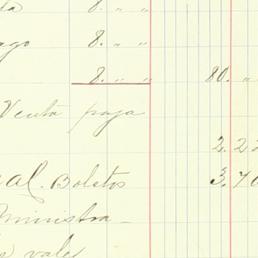 8. " "
ago 8. " "
8. " " 80. "
Venta paja
2. 2
al. Boletos 3. 70
ministra-
vales